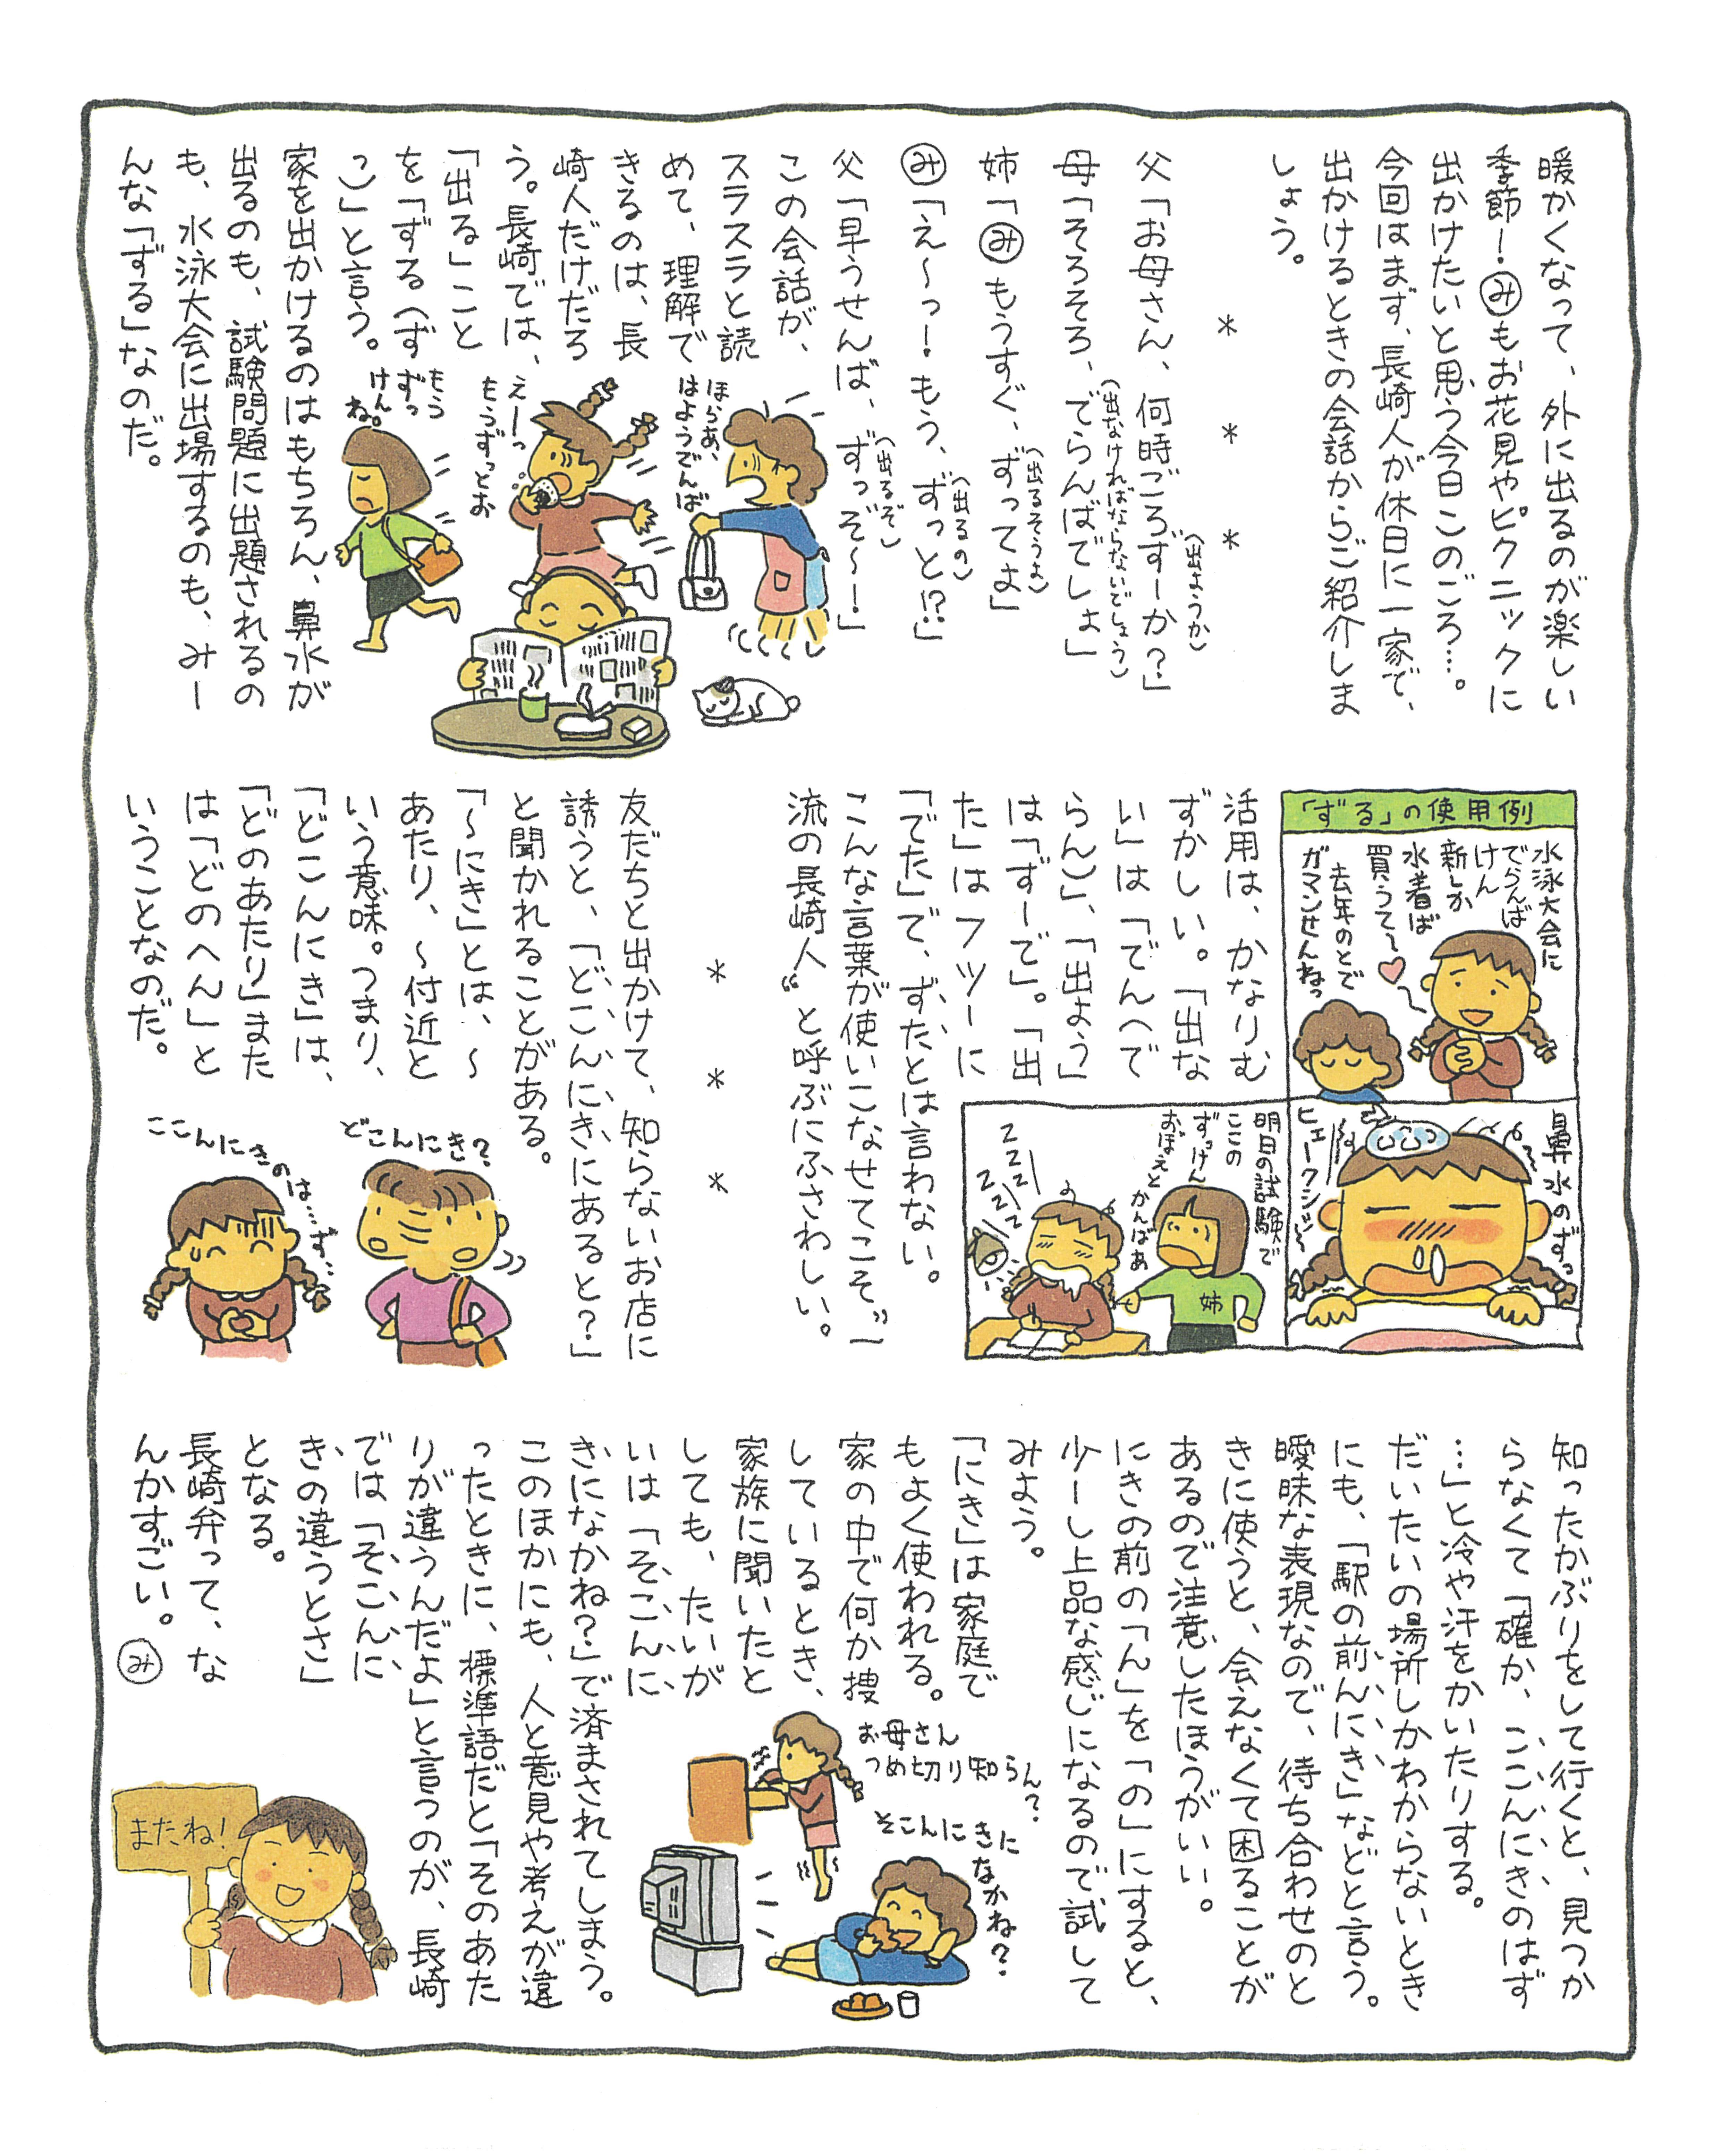 暖かくなって、外に出るのが楽しい
季節！㋯もお花見やピクニックに
出かけたいと思う今日このごろ…。
今回はまず、長崎人が休日に一家で、
出かけるときの会話からご紹介しま
しょう。
＊　＊　＊
父「お母さん、何時ごろずーか？」
（出ようか）
母「そろそろ、でらんばでしょ」
（出なければならないでしょう）
姉「㋯もうすぐ、ずってよ」
（出るそうよ）
㋯「え〜っ！もう、ずっと!?」
（出るの）
父「早うせんば、ずっぞ〜！」
（出るぞ）
この会話が、
スラスラと読
めて、理解で
きるのは、長
崎人だけだろ
う。長崎では、
「出る」こと
を「ずる（ず
っ）」と言う。
家を出かけるのはもちろん、鼻水が
出るのも、試験問題に出題されるの
も、水泳大会に出場するのも、みー
んな「ずる」なのだ。
ほらあ、
はようでんば
えーっ
もうずっとお
もう
ずっ
けん
ね。
「ずる」の使用例
水泳大会に
でらんば
けん
新しか
水着ば
買うて〜
去年のとで
ガマンせんねっ
鼻水のずっ
ヒェークション
明日の試験で
ここの
ずっけん
おぼえと
かんばあ
ZZZZ
ZZZZ
姉
活用は、かなりむ
ずかしい。「出な
い」は「でん（で
らん）」、「出よう」
は「ずーで」。「出
た」はフツーに
「でた」で、ずたとは言わない。
こんな言葉が使いこなせてこそ〝一
流の長崎人〟と呼ぶにふさわしい。
＊　＊　＊
友だちと出かけて、知らないお店に
誘うと、「どこんにきにあると？」
と聞かれることがある。
「〜にき」とは、〜
あたり、〜付近と
いう意味。つまり、
「どこんにき」は、
「どのあたり」また
は「どのへん」と
いうことなのだ。
どこんにき？
ここんにきのは…ず…
知ったかぶりをして行くと、見つか
らなくて「確か、ここんにきのはず
…」と冷や汗をかいたりする。
だいたいの場所しかわからないとき
にも、「駅の前んにき」などと言う。
曖昧な表現なので、待ち合わせのと
きに使うと、会えなくて困ることが
あるので注意したほうがいい。
にきの前の「ん」を「の」にすると、
少ーし上品な感じになるので試して
みよう。
「にき」は家庭で
もよく使われる。
家の中で何か捜
しているとき、
家族に聞いたと
しても、たいが
いは「そこんに
きになかね？」で済まされてしまう。
このほかにも、人と意見や考えが違
ったときに、標準語だと「そのあた
りが違うんだよ」と言うのが、長崎
では「そこんに
きの違うとさ」
となる。
長崎弁って、な
んかすごい。㋯
お母さん
つめ切り知らん？
そこんにきに
なかね？
またね！